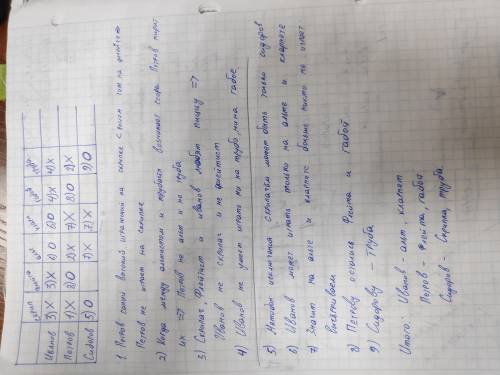 скрип флейта альт клар габой труба
Иванов 3)X 3)X 6)O 6)O 4)X 4)X
Петров 1)X 8)O 2)X 7)X 8)O 2)X
Сидоров 5)O 7)X 7)X 9)O
1 Петров самый высокий играющий на скрипке
Петров не играет на скрипке
2) Когда между альтистом и трубачём возникает ссора Петров мирит
их => Петров не альт и не труба
3) Скрипач Флейтист и Иванов любят пиццу =>
Иванов не скрипач и не флейтист
4) Иванов не умеет играть ни на трубе, ни на габое
5) Методом исключения скрипачём может быть только сидоров
6) Иванов может играть только на альте и кларнете
7) Значит на альте и кларнете больше никто не играет
Вычёркиваем
8) Петрову осталось Флейта и габой
9) Сидорову - Труба
Итого: Иванов - альт, кларнет
Петров - Флейта, габой
Сидоров - Скрипка, труба.